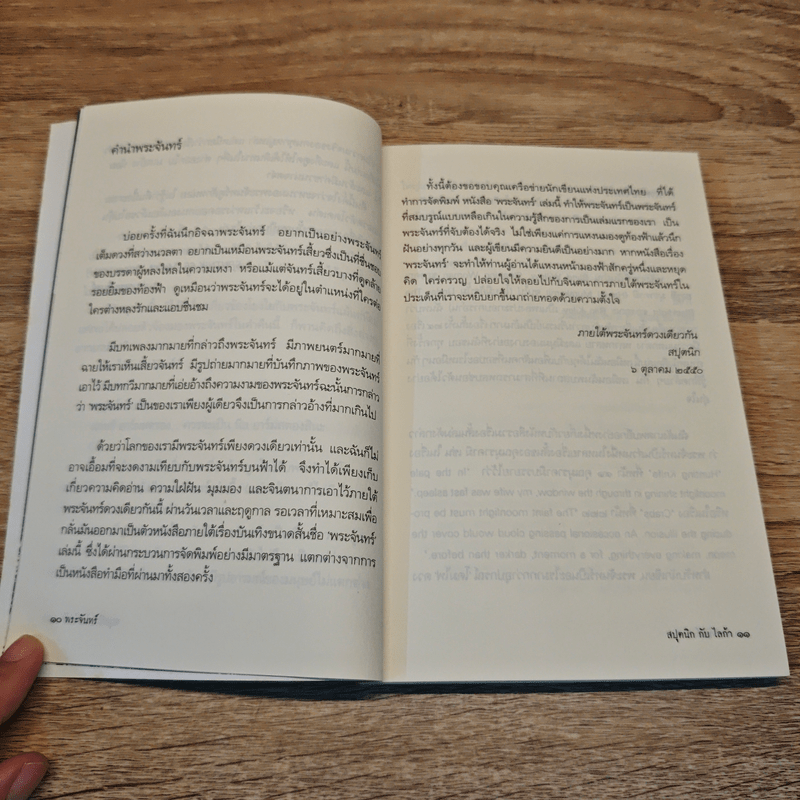 คำนำพระจันทร์
บ่อยครั้งที่ฉันนึกอิจฉาพระจันทร์ อยากเป็นอย่างพระจันทร์
เต็มดวงที่สว่างนวลตา อยากเป็นเหมือนพระจันทร์เสี้ยวซึ่งเป็นที่ชื่นชอบ
ของบรรดาผู้หลงใหลในความเหงา หรือแม้แต่จันทร์เสี้ยวบางที่ดูคล้าย
รอยยิ้มของท้องฟ้า ดูเหมือนว่าพระจันทร์จะได้อยู่ในตำแหน่งที่ใครต่อ
ใครต่างหลงรักและแอบชื่นชม
มีบทเพลงมากมายที่กล่าวถึงพระจันทร์ มีภาพยนตร์มากมายที่
ฉายให้เราเห็นเสี้ยวจันทร์ มีรูปถ่ายมากมายที่บันทึกภาพของพระจันทร์
เอาไว้ มีบทกวีมากมายที่เอ่ยอ้างถึงความงามของพระจันทร์ฉะนั้นการกล่าว
ว่า 'พระจันทร์' เป็นของเราเพียงผู้เดียวจึงเป็นการกล่าวอ้างที่มากเกินไป
ด้วยว่าโลกของเรามีพระจันทร์เพียงดวงเดียวเท่านั้น และฉันก็ไม่
อาจเอื้อมที่จะงดงามเทียบกับพระจันทร์บนฟ้าได้ จึงทำได้เพียงเก็บ
เกี่ยวความคิดอ่าน ความใฝ่ฝัน มุมมอง และจินตนาการเอาไว้ภายใต้
พระจันทร์ดวงเดียวกันนี้ ผ่านวันเวลาและฤดูกาล รอเวลาที่เหมาะสมเพื่อ
กลั่นมันออกมาเป็นตัวหนังสือภายใต้เรื่องบันเทิงขนาดสั้นชื่อ 'พระจันทร์'
เล่มนี้ ซึ่งได้ผ่านกระบวนการจัดพิมพ์อย่างมีมาตรฐาน แตกต่างจากการ
เป็นหนังสือทำมือที่ผ่านมาทั้งสองครั้ง
๑๐ พระจันทร์
ทั้งนี้ต้องขอขอบคุณเครือข่ายนักเขียนแห่งประเทศไทย ที่ได้
ทำการจัดพิมพ์ หนังสือ 'พระจันทร์' เล่มนี้ ทำให้พระจันทร์เป็นพระจันทร์
ที่สมบูรณ์แบบเหลือเกินในความรู้สึกของการเป็นเล่มแรกของเรา เป็น
พระจันทร์ที่จับต้องได้จริง ไม่ใช่เพียงแค่การแหงนมองดูท้องฟ้าแล้วนึก
ฝันอย่างทุกวัน และผู้เขียนมีความยินดีเป็นอย่างมาก หากหนังสือเรื่อง
'พระจันทร์' จะทำให้ท่านผู้อ่านได้แหงนหน้ามองฟ้าสักครู่หนึ่งและหยุด
คิด ใคร่ครวญ ปล่อยใจให้ลอยไปกับจินตนาการภายใต้พระจันทร์ใน
ประเด็นที่เราจะหยิบยกขึ้นมาถ่ายทอดด้วยความตั้งใจ
ภายใต้พระจันทร์ดวงเดียวกัน
สปุตนิก
๖ ตุลาคม ๒๕๕๐
สปุตนิก กับ ไลก้า ๑๑